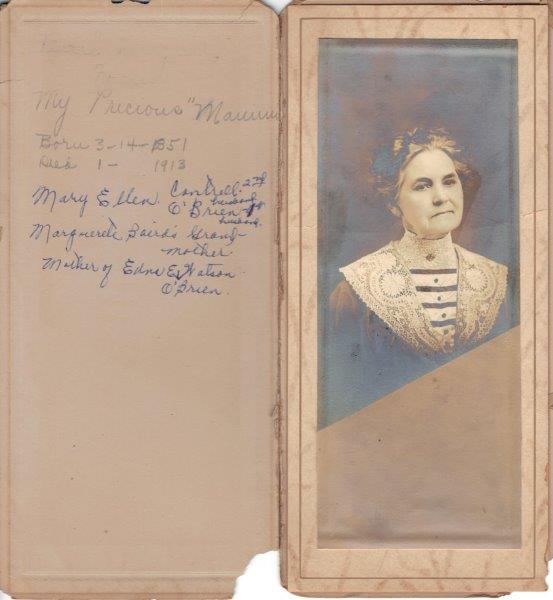 My Precious "Mamma
Born 3-14-1851
Died 1- 1913
Mary Ellen Cantrell 2nd husband
O'Brien 1st husband
Marguerete Baird's Grand-
mother
Mother of Edna E. Watson
O'Brien